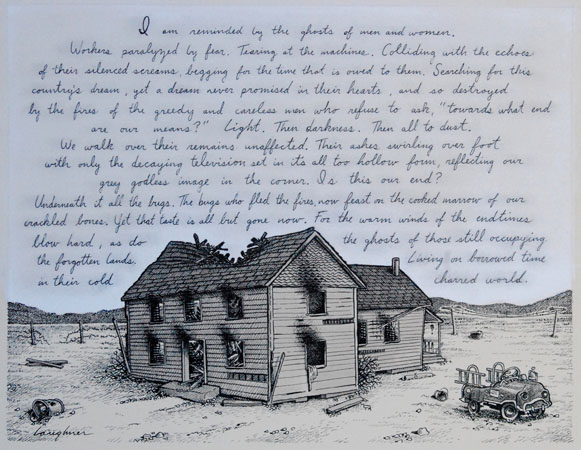 I am reminded by the ghosts of men and women.
Workers paralyzed by fear. Tearing at the machines. Colliding with the echoes
of their silenced screams, begging for the time that is owed to them. Searching for this
country's dream, yet a dream never promised in their hearts, and so destroyed
by the fires of the greedy and careless men who refuse to ask, "towards what end
are our means?" Light. Then darkness. Then all to dust.
We walk over their remains unaffected. Their ashes swirling over foot
with only the decaying television set in its all too hollow form, reflecting our
grey godless image in the corner. Is this our end?
Underneath it all the bugs. The bugs who fled the fires, now feast on the cooked marrow of our
crackled bones. Yet that taste is all but gone now. For the warm winds of the endtimes
blow hard, as do the ghosts of those still occupying
the forgotten lands. Living on borrowed time
in their cold charred world.
Laughner